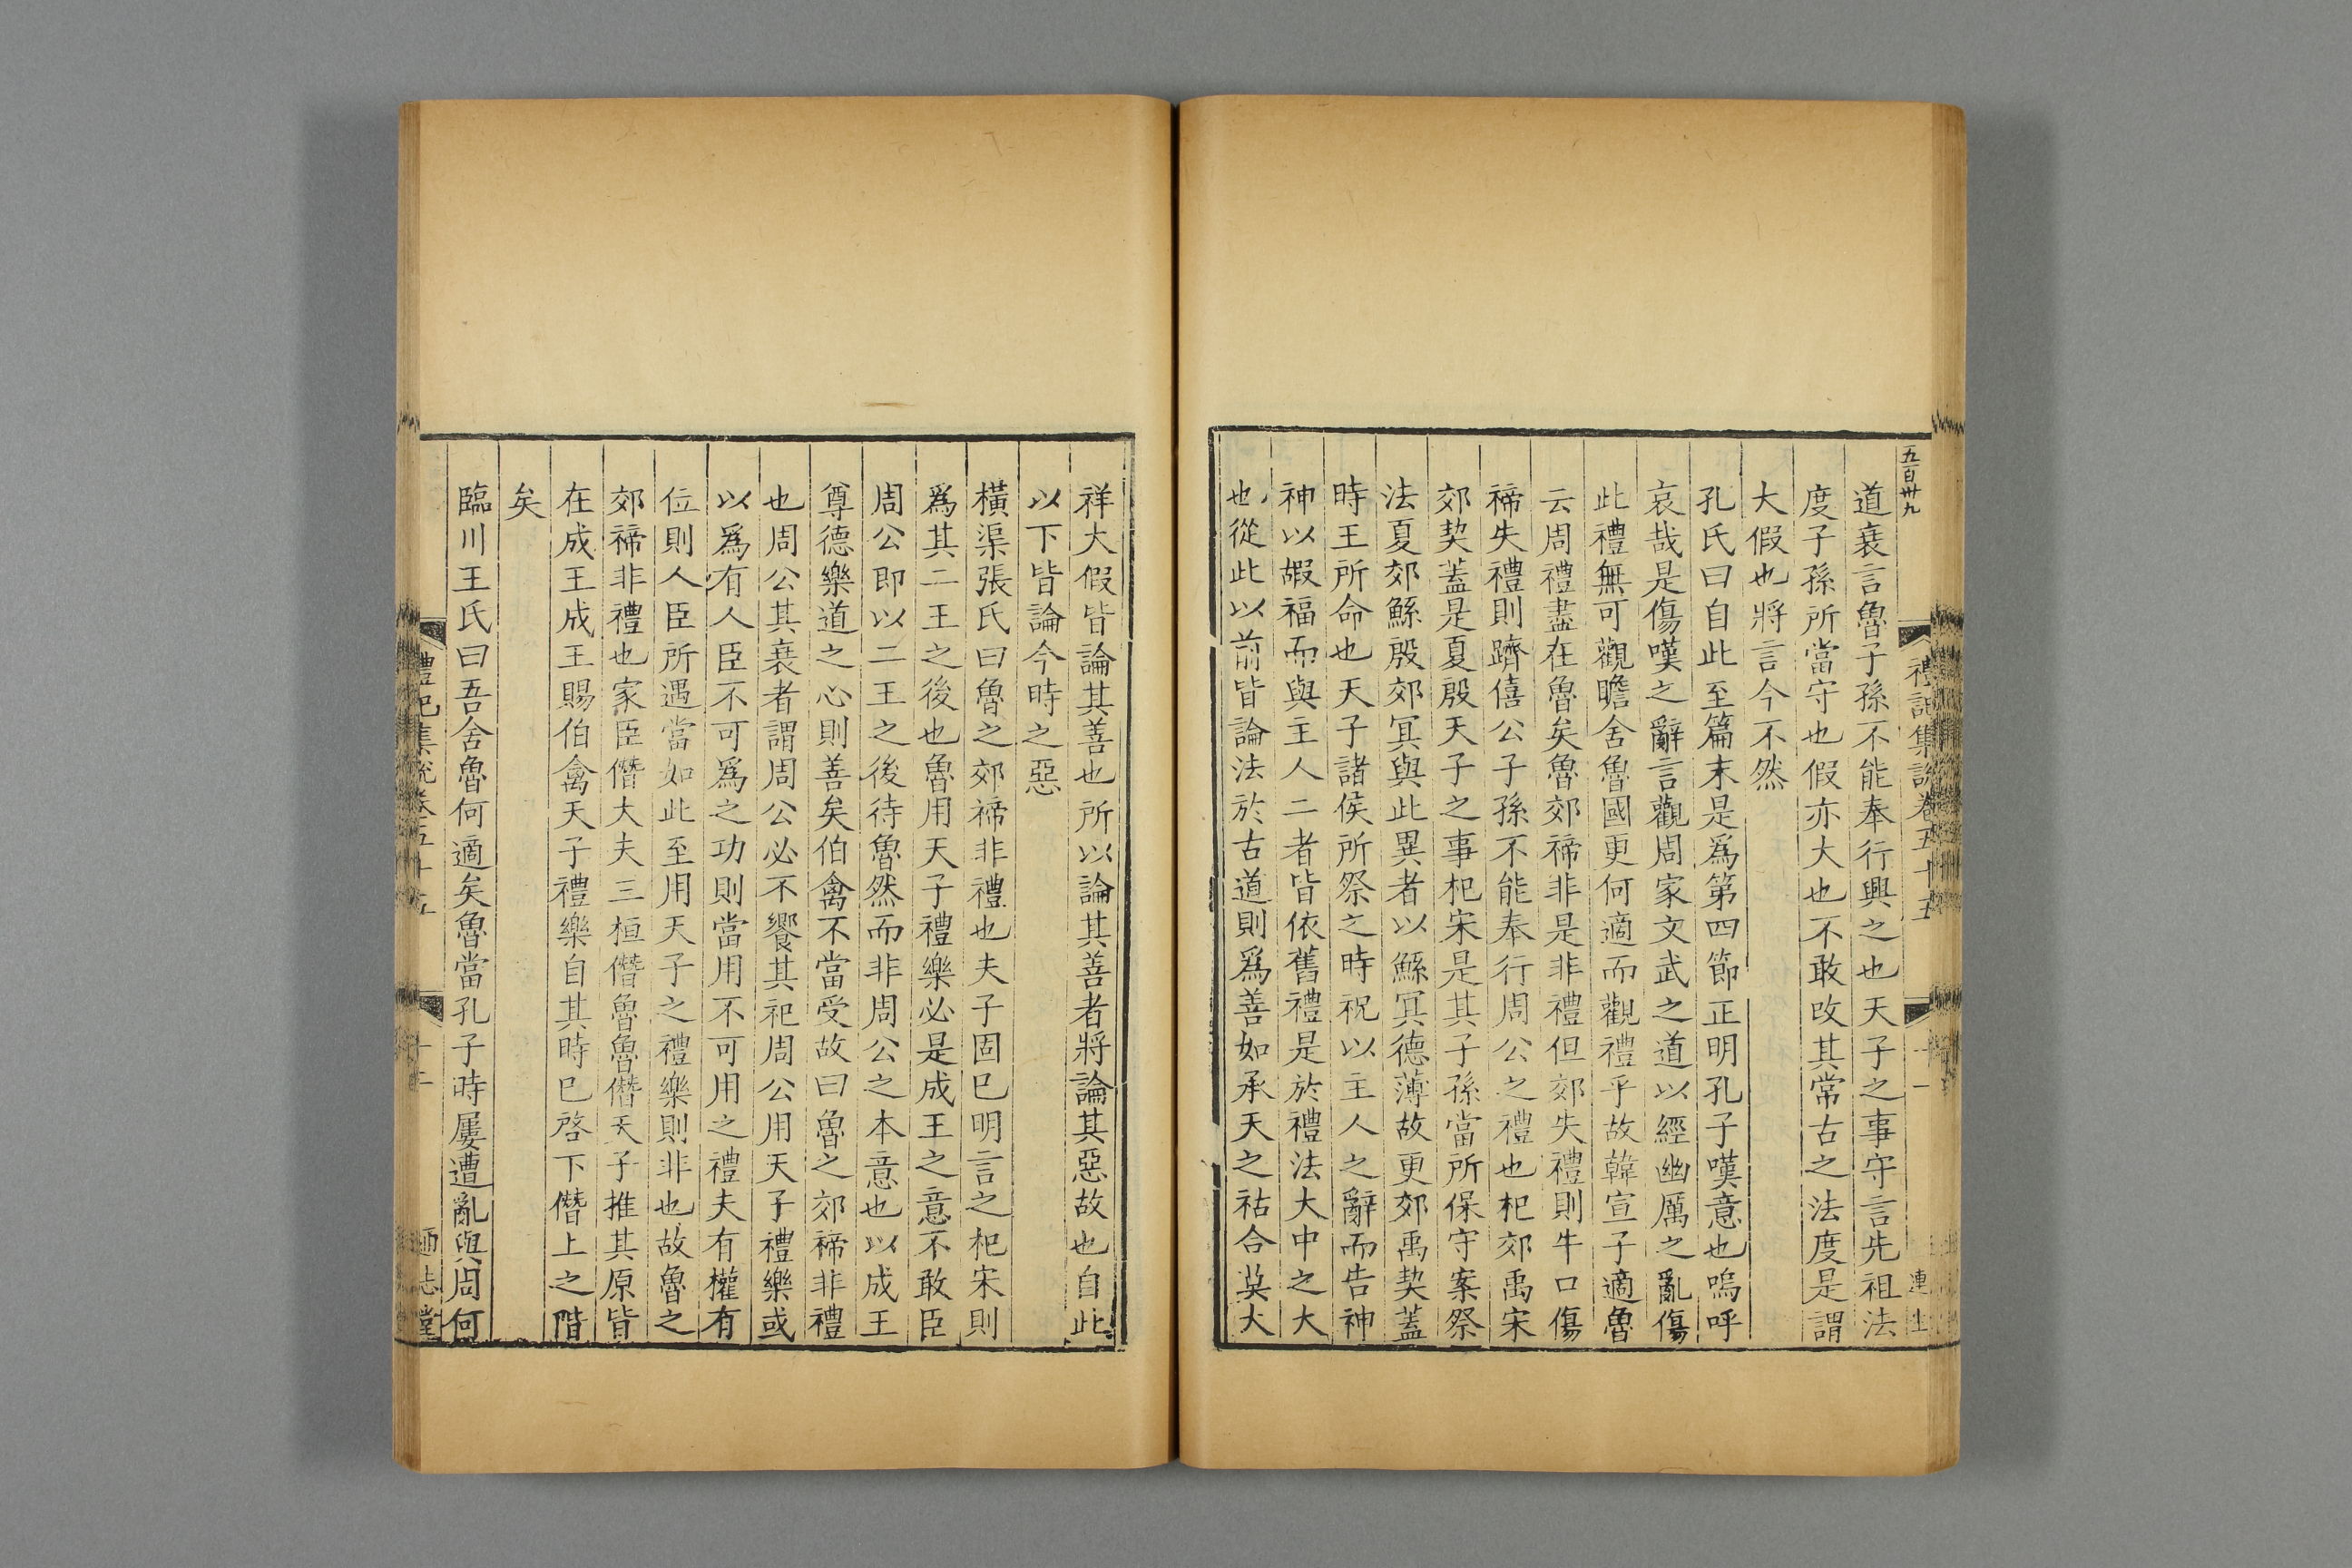 五百卅九
禮記集說卷五十五
道衰言魯子孫不能奉行興之也天子之事守言先祖法
度子孫所當守也假亦大也不敢改其常古之法度是謂
大假也將言今不然
孔氏曰自此至篇末是爲第四節正明孔子嘆意也嗚呼
哀哉是傷嘆之辭言觀周家文武之道以經幽厲之亂傷
此禮無可觀瞻舍魯國更何適而觀禮乎故韓宣子適魯
云周禮盡在魯矣魯郊禘非是非禮但郊失禮則牛口傷
禘失禮則躋僖公子孫不能奉行周公之禮也杞郊禹宋
郊契蓋是夏殷天子之事杞宋是其子孫當所保守案祭
法夏郊鯀殷郊冥與此異者以鯀冥德薄故更郊禹契蓋
時王所命也天子諸侯所祭之時祝以主人之辭而告神
神以嘏福而與主人二者皆依舊禮是於禮法大中之大
也從此以前皆論法於古道則爲善如承天之祜合莫大
祥大假皆論其善也所以論其善者將論其惡故也自此
以下皆論今時之惡
橫渠張氏曰魯之郊禘非禮也夫子固已明言之杞宋則
爲其二王之後也魯用天子禮樂必是成王之意不敢臣
周公即以二王之後待魯然而非周公之本意也以成王
尊德樂道之心則善矣伯禽不當受故曰魯之郊禘非禮
也周公其衰者謂周公必不饗其祀周公用天子禮樂或
以爲有人臣不可爲之功則當用不可用之禮夫有權有
位則人臣所遇當如此至用天子之禮樂則非也故魯之
郊禘非禮也家臣僭大夫三桓僭魯魯僭天子推其原皆
在成王成王賜伯禽天子禮樂自其時已啓下僭上之階
矣
臨川王氏曰吾舍魯何適矣魯當孔子時屢遭亂與周何
禮記集說卷五十五
十二
通志堂